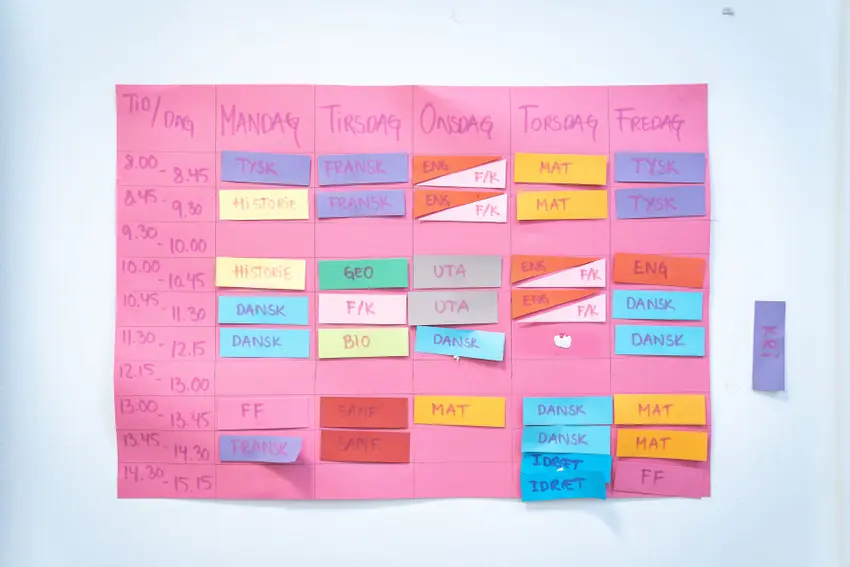 TID/DAG MANDAG TIRSDAG ONSDAG TORSDAG FREDAG
8.00-8.45 TYSK FRANSK ENG F/K MAT TYSK
8.45-9.30 HISTORIE FRANSK ENG F/K MAT TYSK
9.30-10.00
10.00-10.45 HISTORIE GEO UTA ENG F/K ENG
10.45-11.30 DANSK F/K UTA ENG F/K DANSK
11.30-12.15 DANSK BIO DANSK DANSK
12.15-13.00
13.00-13.45 FF SAMF MAT DANSK MAT
13.45-14.30 FRANSK SAMF DANSK MAT
IDRÆT
14.30-15.15 IDRÆT FF
KRI